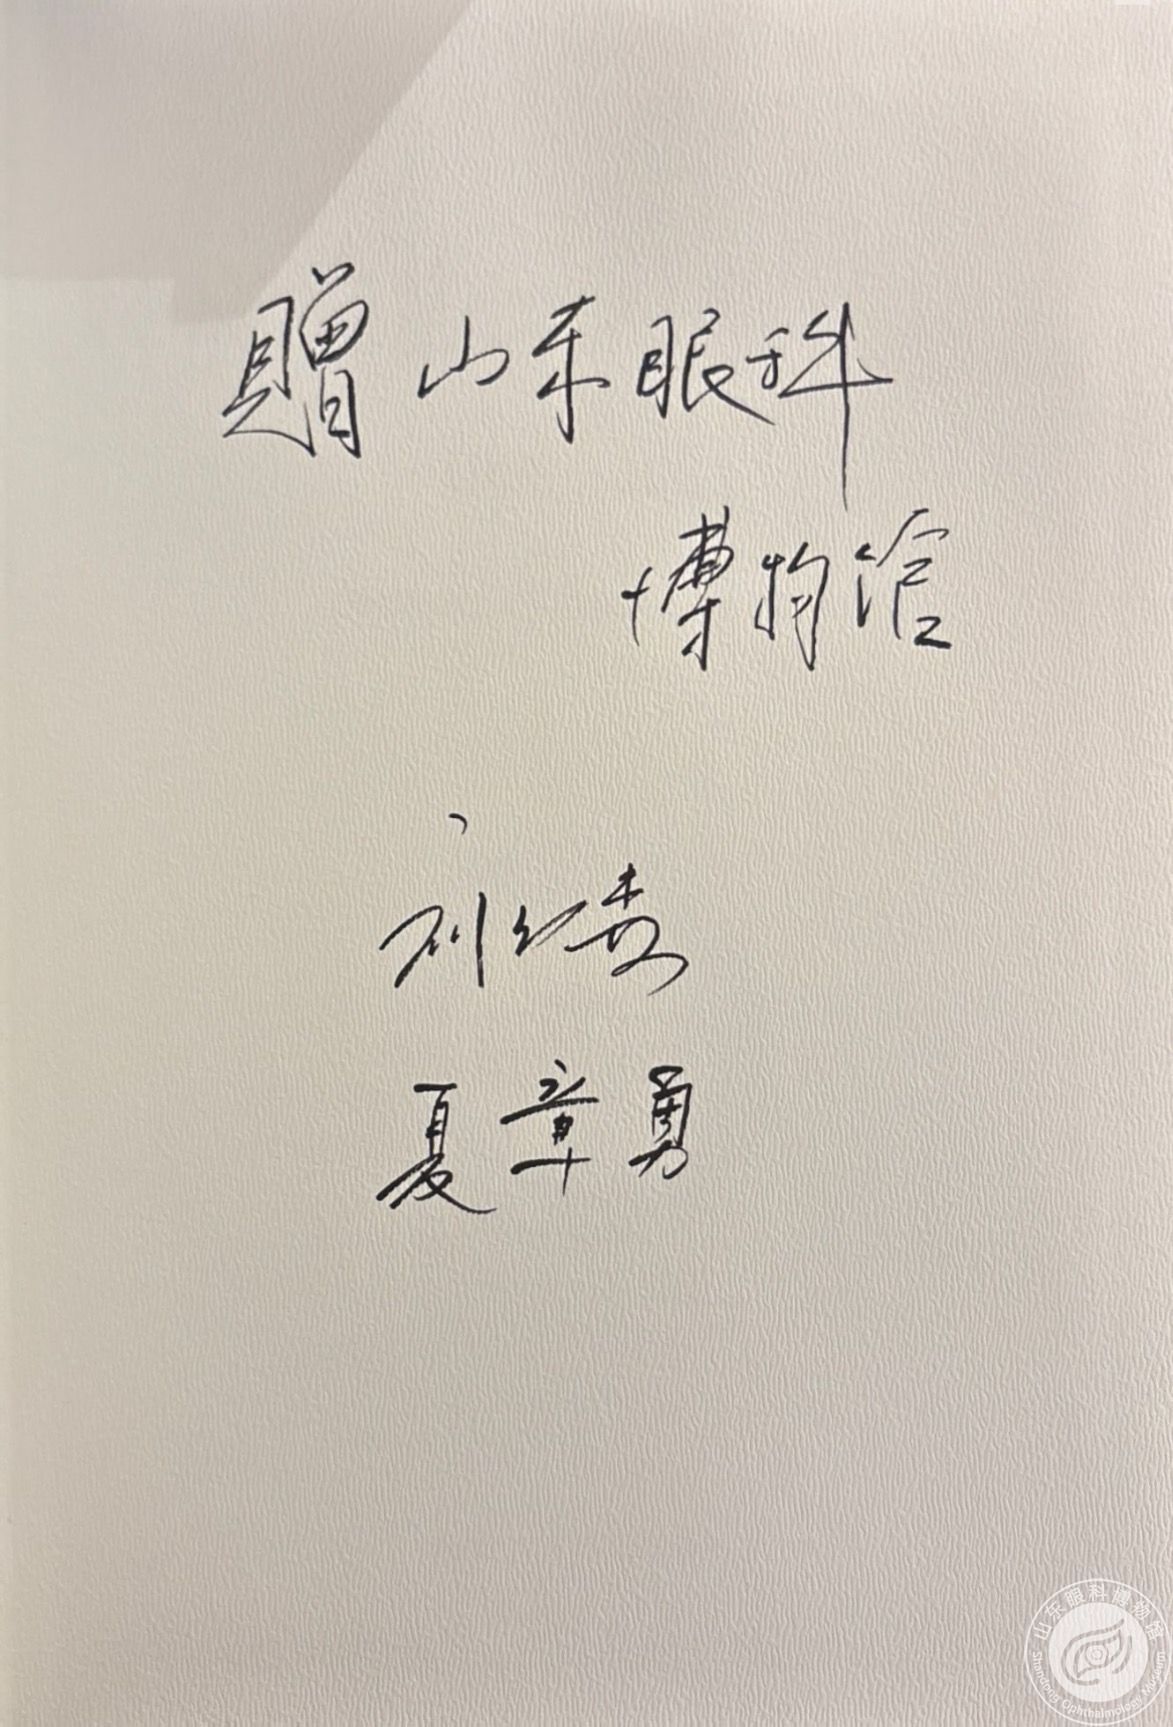 贈山东眼科
博物馆
刘
夏章勇
山东眼科博物馆
Shandong Ophthalmology Museum